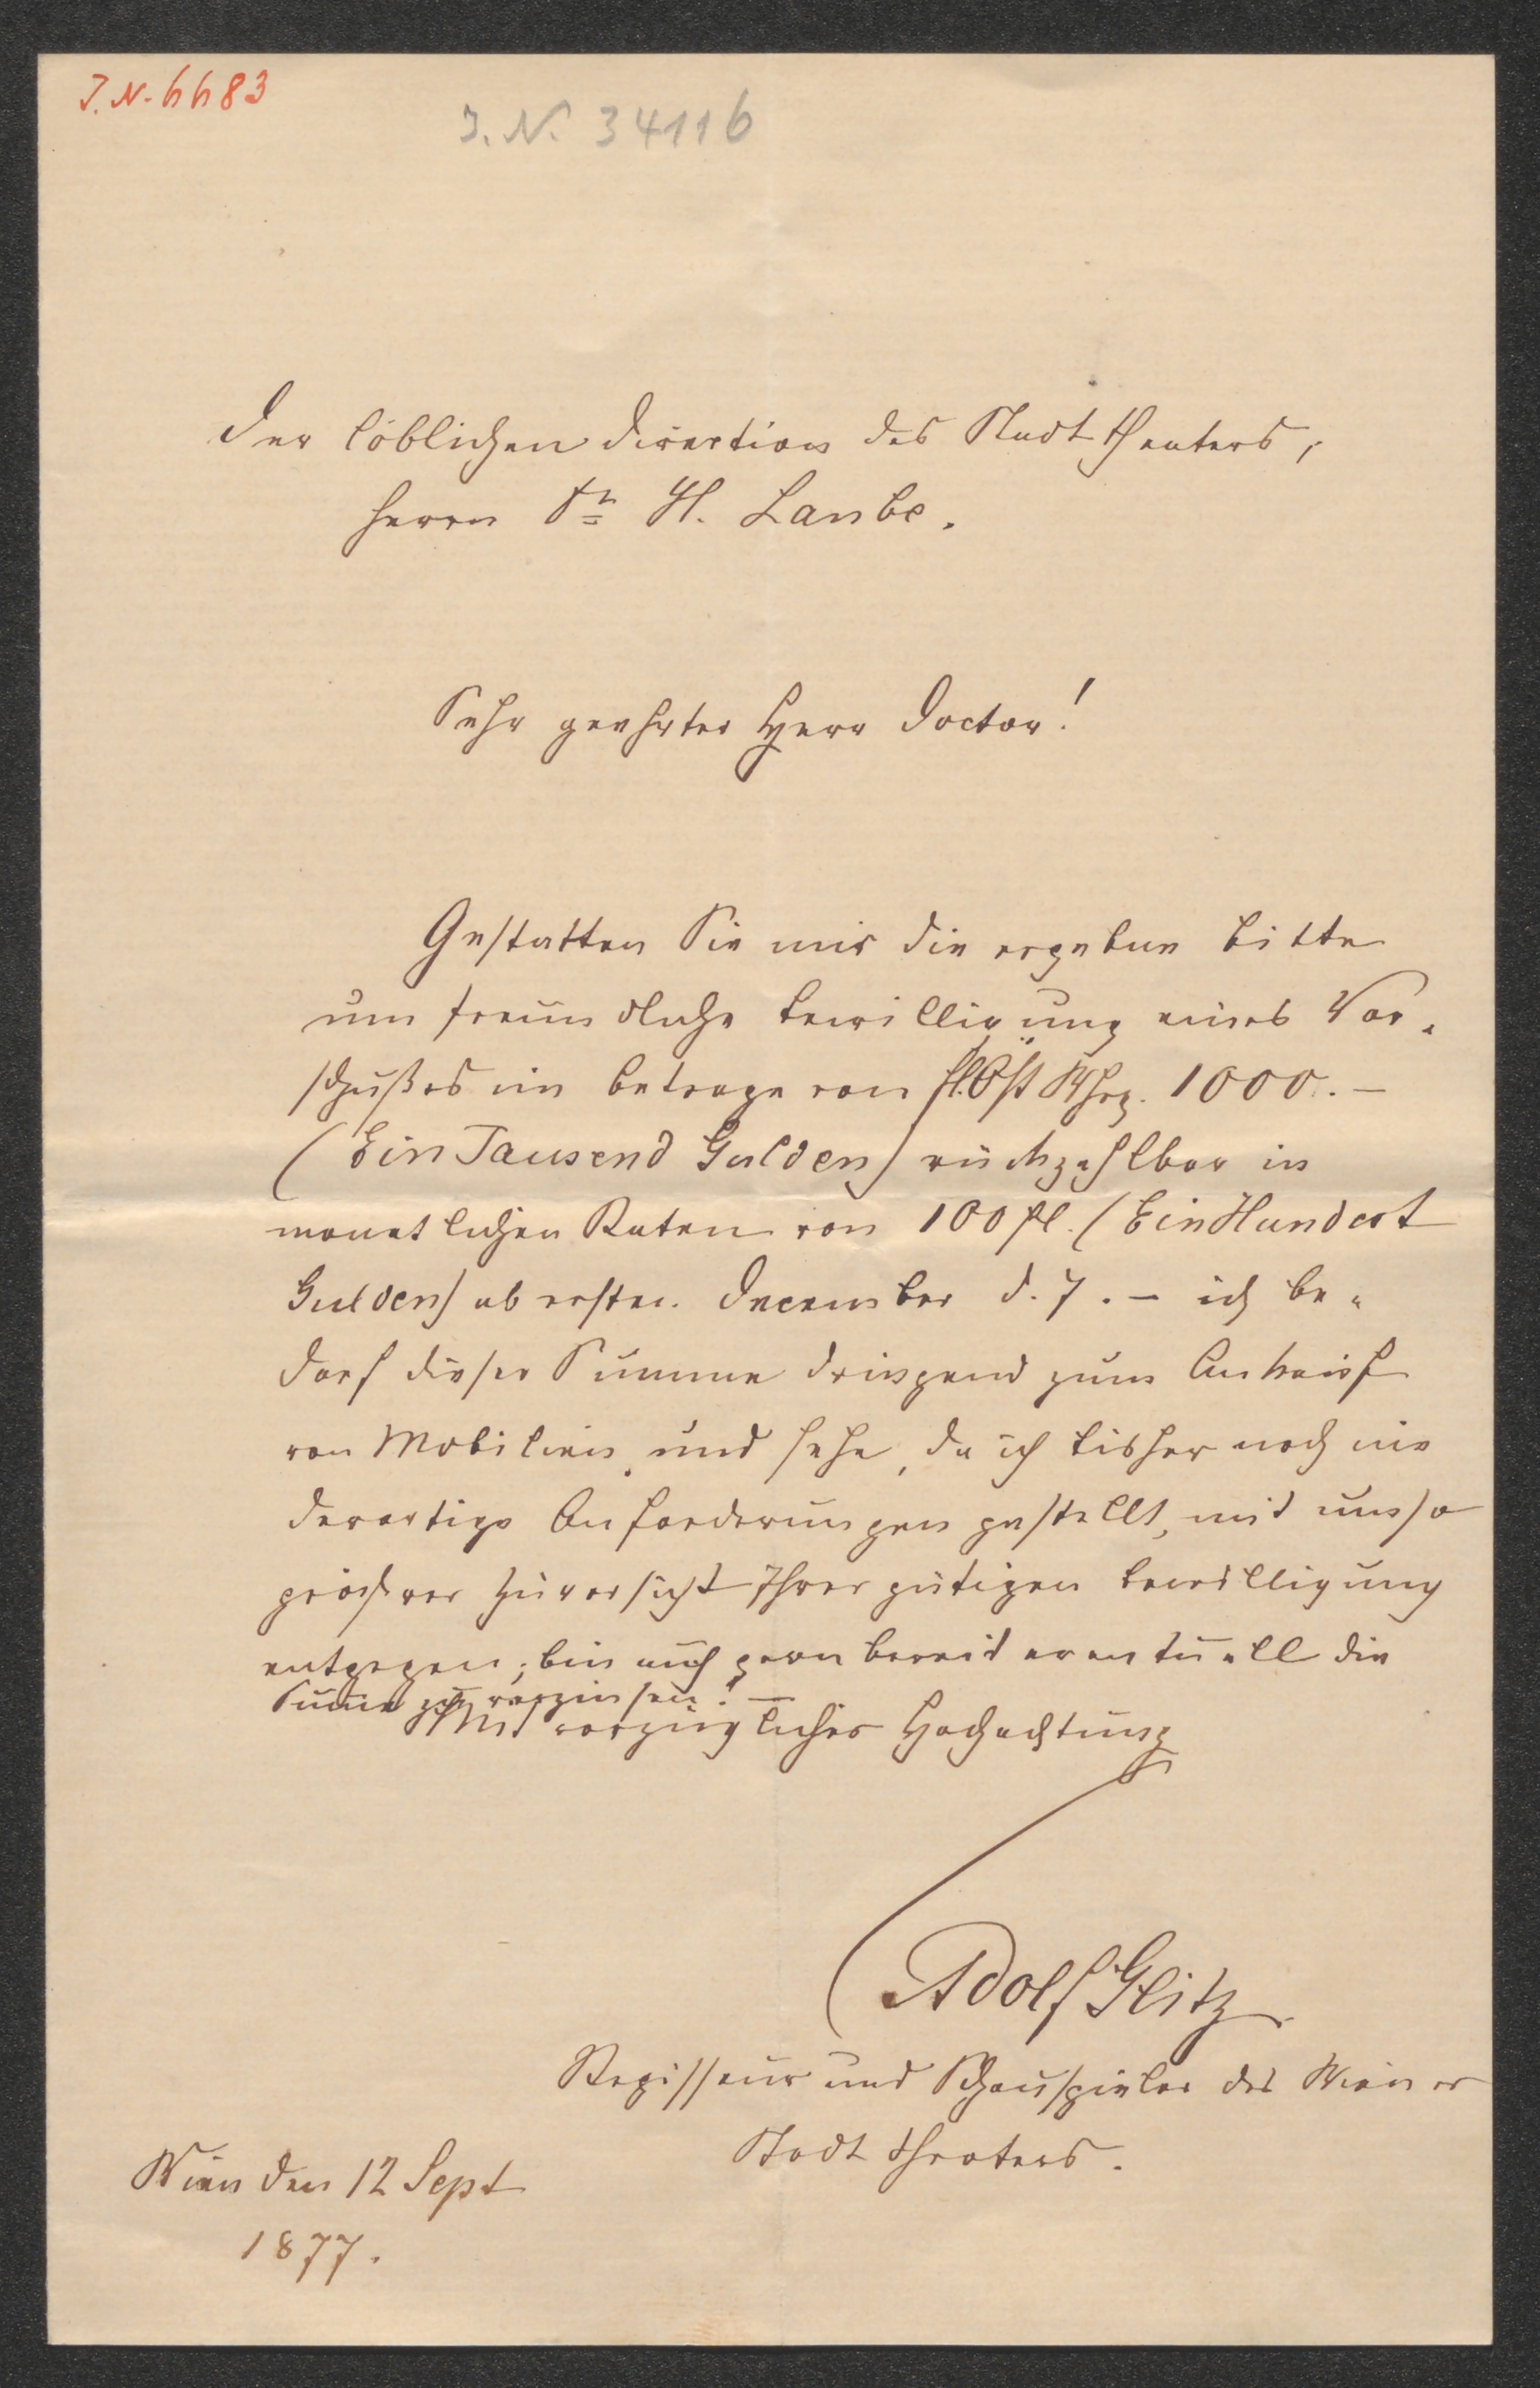 J. N. 6683
J. N. 34116
Der löblichen Direction des Stadttheaters,
Herrn Dr H. Laube.
Sehr geehrter Herr Doctor!
Gestatten Sie mir die ergebene Bitte
um freundliche Bewilligung eines Vor-
schußes im Betrage von fl. Öst Whrg. 1000.–
(Ein Tausend Gulden) rückzahlbar in
monatlichen Raten von 100 fl. (Ein Hundert
Gulden) ab ersten December d. J. – ich be-
darf dieser Summe dringend zum Ankauf
von Mobilien und sehe, da ich bisher noch nie
derartige Anforderungen gestellt, mit umso
größerer Zuversicht Ihrer gütigen Bewilligung
entgegen; bin auch gern bereit eventuell die
Summe zu verzinsen. –
Mit vorzüglicher Hochachtung
Adolf Glitz
Regisseur und Schauspieler des Wiener
Stadt Theaters.
Wien den 12 Sept
1877.